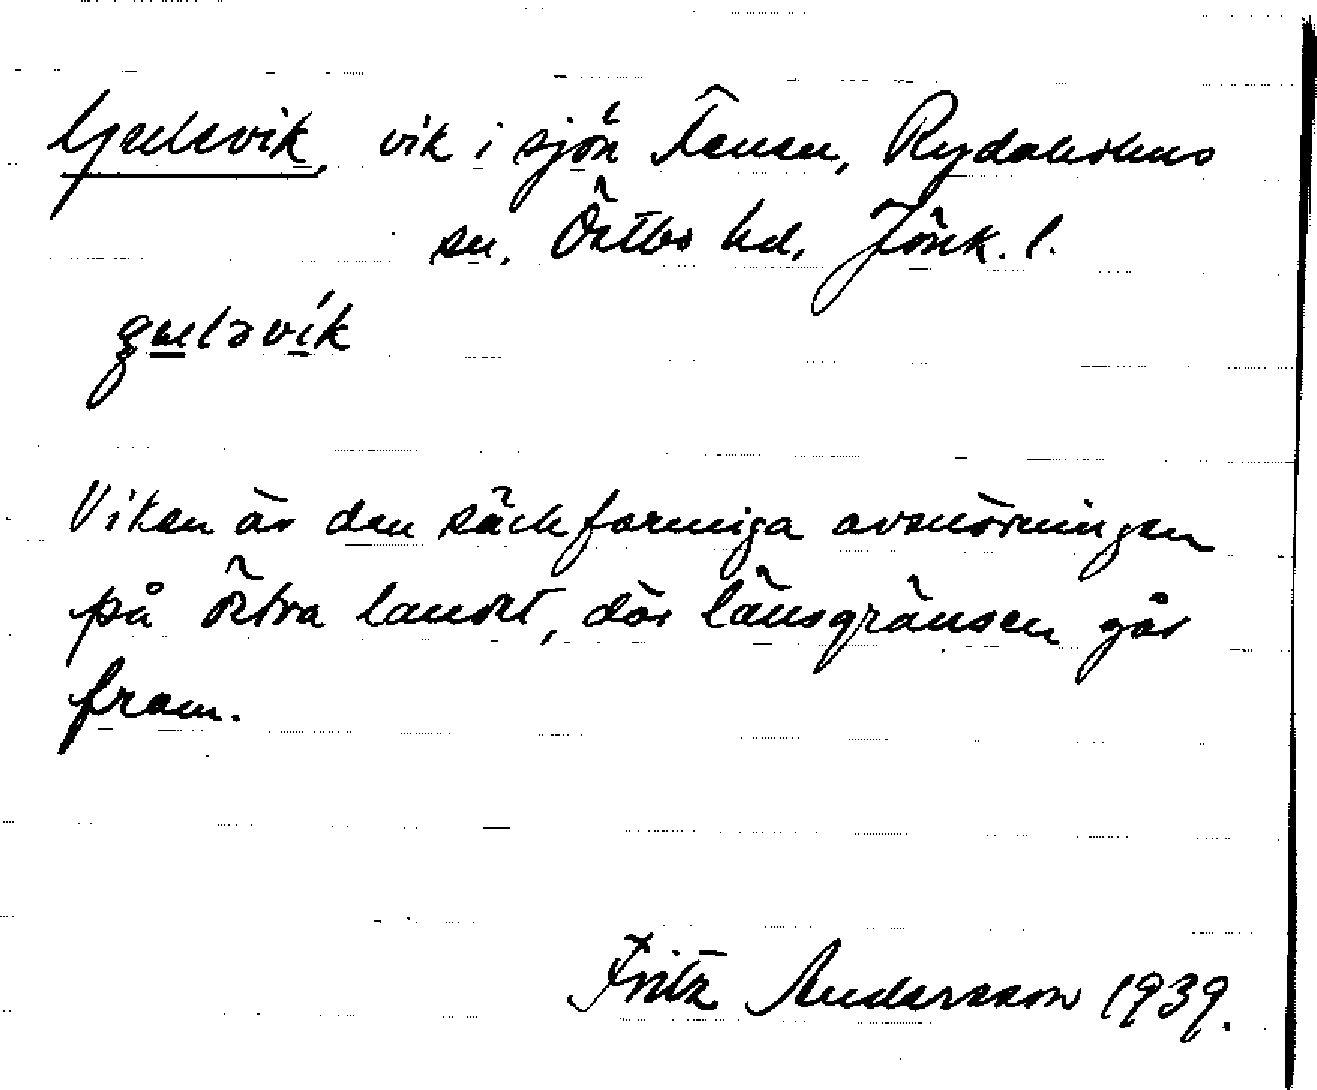 Gulsvik, vik i sjön Femen, Rydaholms
sn, Östbo hd, Jönk. l.
gulsvik
Viken är den säckformiga avsnörningen
på östra landet, där länsgränsen går
fram.
Fritz Andersson 1939.